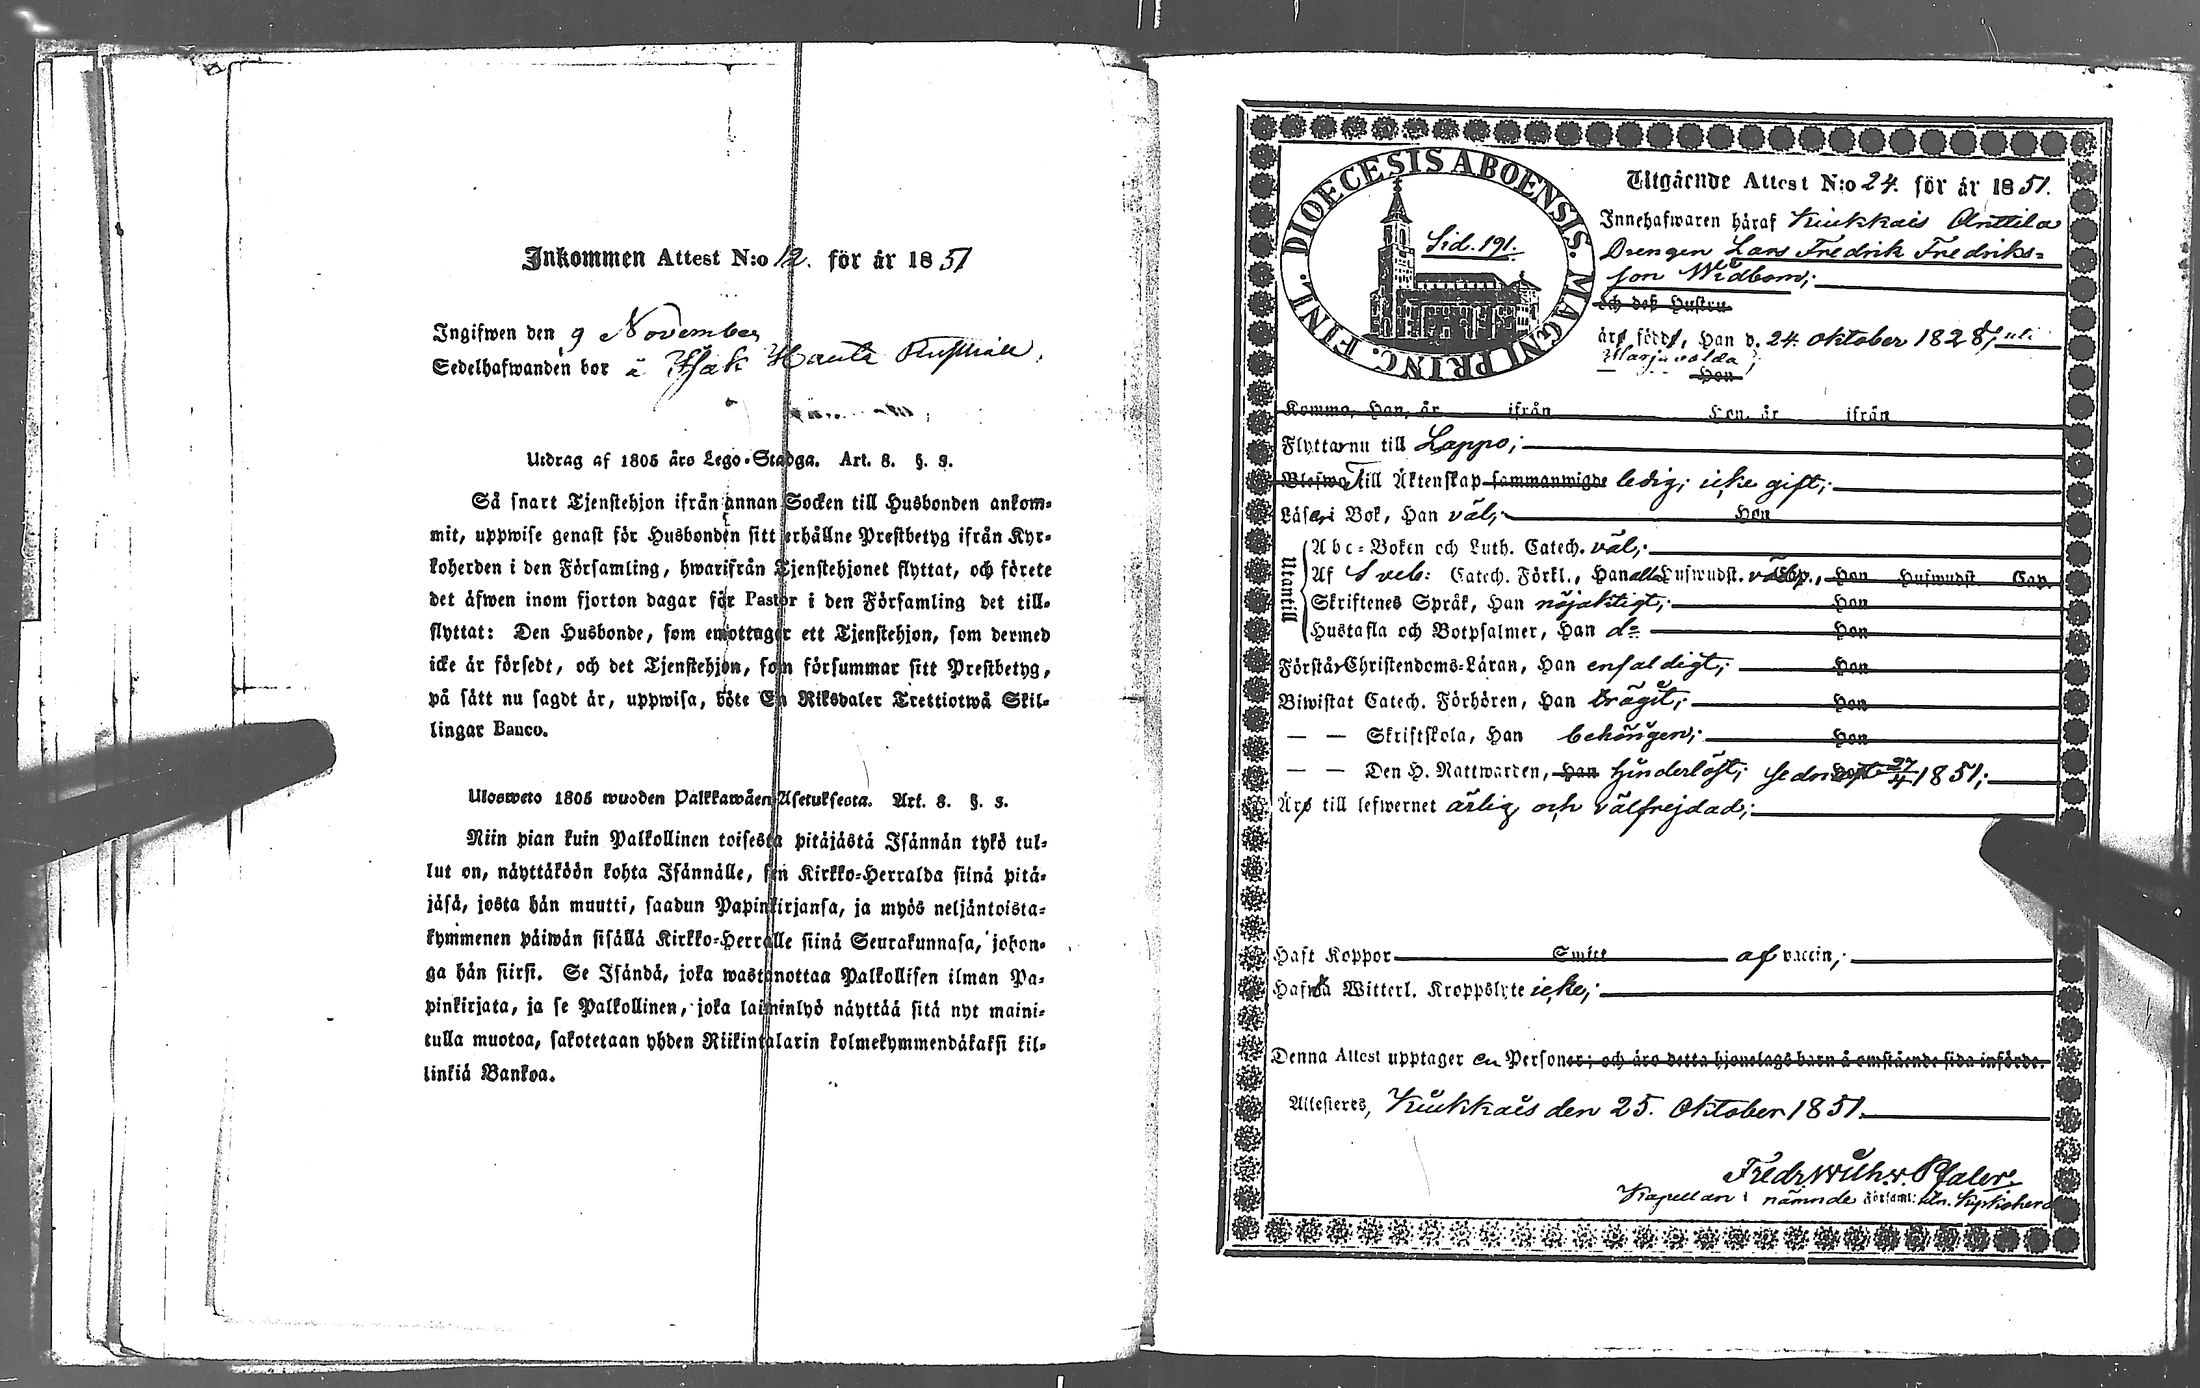 Inkommen Attest N:o 12. för år 1851
Ingifwen den 9 November
Sedelhafwanden bor å Isak Hants
Utdrag af 1805 års Lego-Stadga. Art. 8. §. 3.
Så snart Tjenstehjon ifrån annan Socken till Husbonden ankom-
mit, uppwise genast för Husbonden sitt erhållne Prestbetyg ifrån Kyr-
koherden i den Församling, hwarifrån Tjenstehjonet flyttat, och förete
det äfwen inom fjorton dagar för Pastor i den Församling det till-
flyttat: Den Husbonde, som emottager ett Tjenstehjon, som dermed
icke är försedt, och det Tjenstehjon, som försummar sitt Prestbetyg,
på sätt nu sagdt är, uppwisa, böte En Riksdaler Trettiotwå Skil-
lingar Banco.
Ulosweto 1805 wuoden Palkkawäen Asetuksesta. Art. 8. §. 3.
Niin pian kuin Palkollinen toisesta pitäjästä Isännän tykö tul-
lut on, näyttäköön kohta Isännälle, sen Kirkko-Herralda siinä pitä-
jäsä, josta hän muutti, saadun Papinkirjansa, ja myös neljäntoista-
kymmenen päiwän sisällä Kirkko-Herralle siinä Seurakunnasa, johon-
ga hän siirsi. Se Isändä, joka wastanottaa Palkollisen ilman Pa-
pinkirjata, ja se Palkollinen, joka laiminlyö näyttää sitä nyt maini-
tulla muotoa, sakotetaan yhden Riikintalarin kolmekymmendäkaksi kil-
linkiä Bankoa.
DIOECESIS ABOENSIS. MAGNI PRINC. FINL.
Sid. 191.
Utgående Attest N:o 24. för år 1851.
Innehafwaren häraf Kiukkais Anttila
Drengen Lars Fredrik Fredriks-
son Widbom;
och dess Hustru
är född, Han d. 24. oktober 1828,
Hon
Komma, Han, år ifrån Hon, år ifrån
Flyttar nu till Lappo;
Blefwo Till Äktenskap sammanwigde ledig; icke gift;
Läser i Bok, Han väl; Hon
Utantill
Abc-Boken och Luth. Catech. väl;
Af Sveb: Catech. Förkl., Han alla Hufwudst. väl Cap., Hon Hufwudst. Cap.
Skriftenes Språk, Han nöjaktigt; Hon
Hustafla och Botpsalmer, Han d:o Hon
Förstår Christendoms-Läran, Han enfaldigt; Hon
Biwistat Catech. Förhören, Han trägit; Hon
— — Skriftskola, Han behörigen; Hon
— — Den H. Nattwarden, Han hinderlöst; sednast 27/4 1851;
Är till lefwernet ärlig och välfrejdad;
Haft Koppor Smitt af vaccin;
Hafwa Witterl. Kroppslyte icke;
Denna Attest upptager en Personer; och äro detta hjonelags barn å omstående sida införde.
Attesteres, Kiukkais den 25. Oktober 1851.
Fredr. Wilh. v. Pfaler.
Kapellan i nämnde Församl: